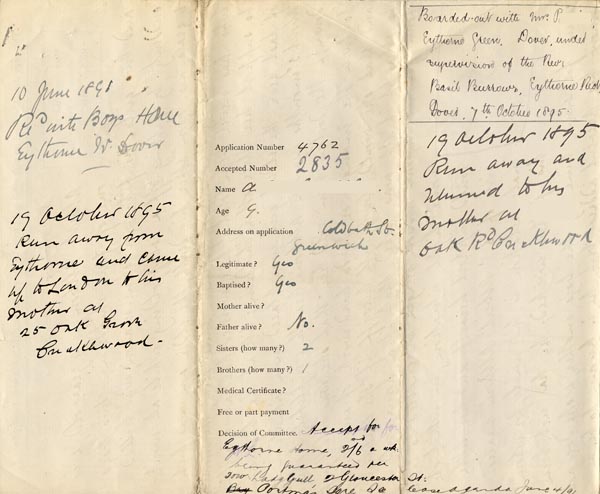 10 June 1891
Re'd into Boys Home
Eythorne Nr Dover
19 October 1895
Run away from
Eythorne and came
up to London to his
mother at
25 Oak Grove
Cricklewood -
Application Number 4762
Accepted Number 2835
Name A
Age 9.
Address on application Coldbath St.
Greenwich
Legitimate? Yes
Baptised? Yes
Mother alive?
Father alive? No.
Sisters (how many?) 2
Brothers (how many?) 1
Medical Certificate?
Free or part payment
Decision of Committee. Accept for
Eythorne Home, 2/6 a wk.
being guaranteed per
2 Gloucester St.
Portman
Boarded-out with Mrs P.
Eythorne Green, Dover, under
supervision of the Rev.
Basil Burrows, Eythorne
Dover. 7th October 1895.
19 October 1895
Run away and
returned to his
mother at
Oak Rd Cricklewood